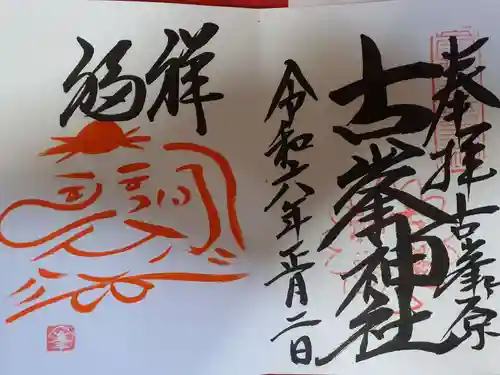 奉拝
古峯ヶ原
古峯神社
令和六年正月二日
祥福